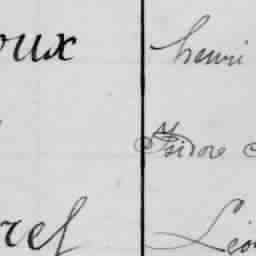 oux henri
Isidore
rel Léon